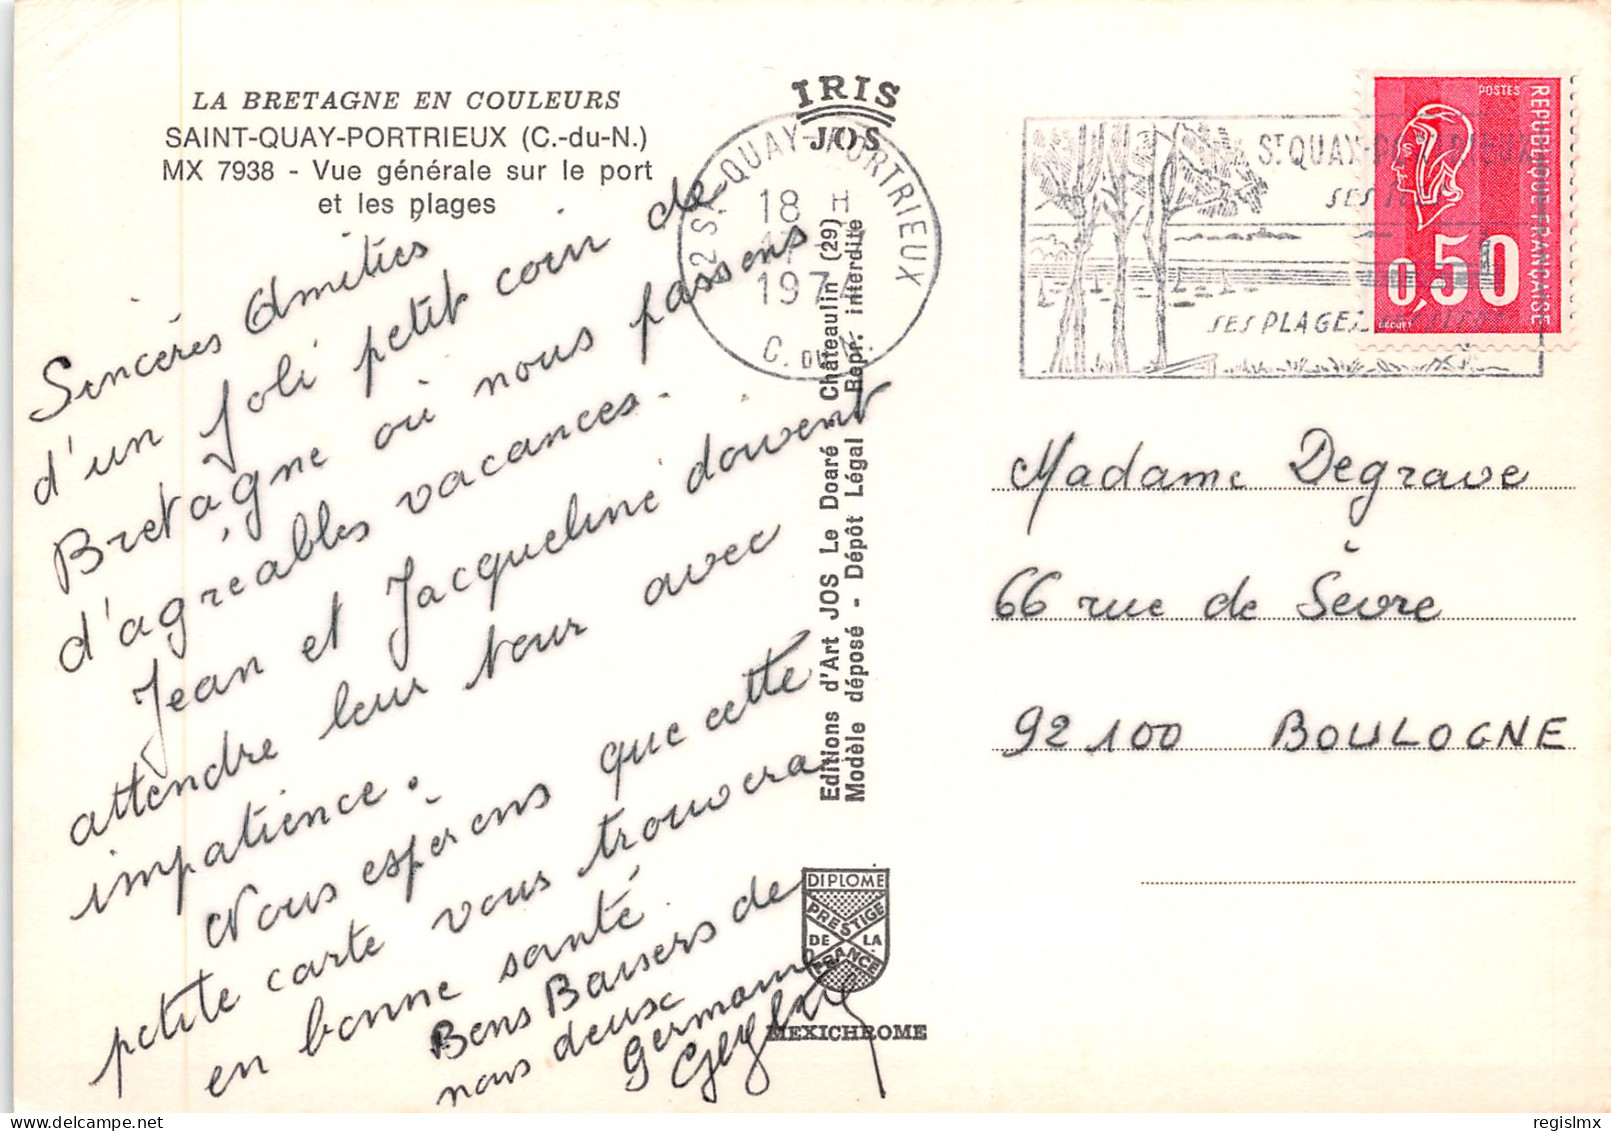 LA BRETAGNE EN COULEURS
SAINT-QUAY-PORTRIEUX (C.-du-N.)
MX 7938 - Vue générale sur le port
et les plages
Sincères Amitiés
d'un joli petit coin de
Bretagne où nous passons
d'agréables vacances.
Jean et Jacqueline doivent
attendre leur tour avec
impatience.
Nous espérons que cette
petite carte vous trouvera
en bonne santé.
Bons Baisers de
nous deux
Germaine
IRIS
JOS
22 ST. QUAY-PORTRIEUX
18 H
17
197
C. DU N.
Editions d'Art JOS Le Doaré Châteaulin (29)
Modèle déposé - Dépôt Légal Repr. interdite
DIPLOME
PRESTIGE
DE LA
FRANCE
MEXICHROME
ST QUAY-PORTRIEUX
SES PLAGES
POSTES
REPUBLIQUE FRANCAISE
0,50
BEQUET
Madame Degrave
66 rue de Sèvre
92100 BOULOGNE
delcampe.net
regislmx